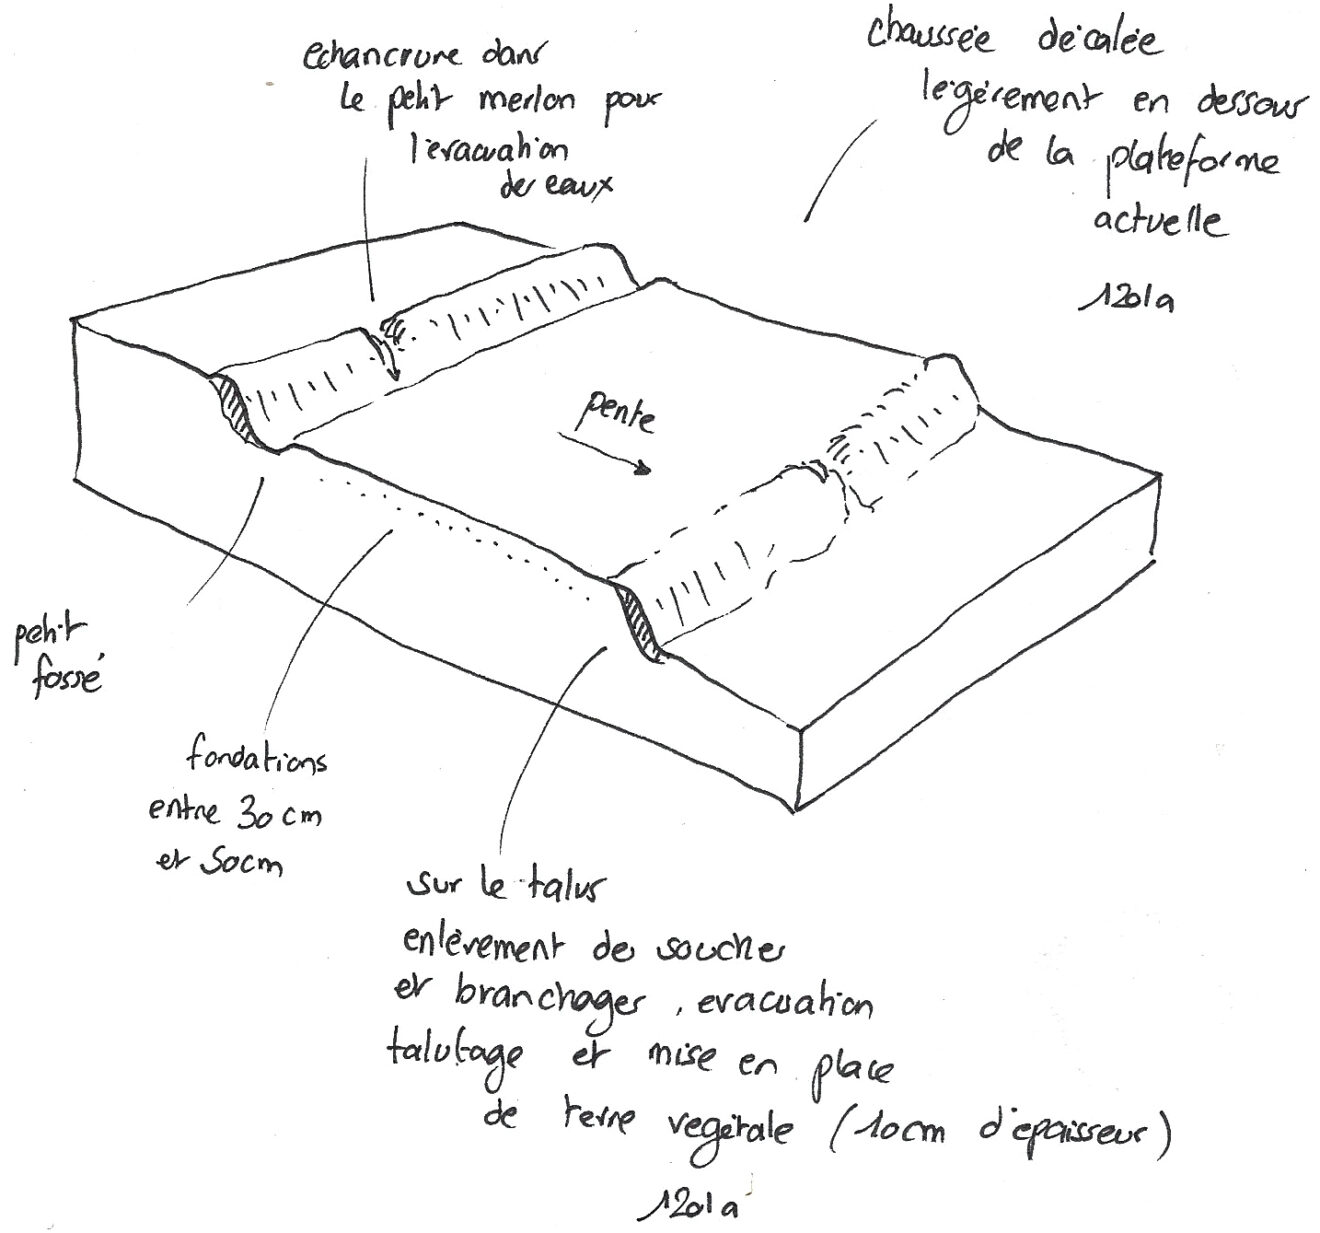 echancrure dans
le petit merlon pour
l'evacuation
des eaux
chaussée décalée
légèrement en dessous
de la plateforme
actuelle
1201a
pente
petit
fossé
fondations
entre 30 cm
et 50cm
sur le talus
enlèvement de souches
et branchages, evacuation
talutage et mise en place
de terre végétale (10cm d'épaisseur)
1201a